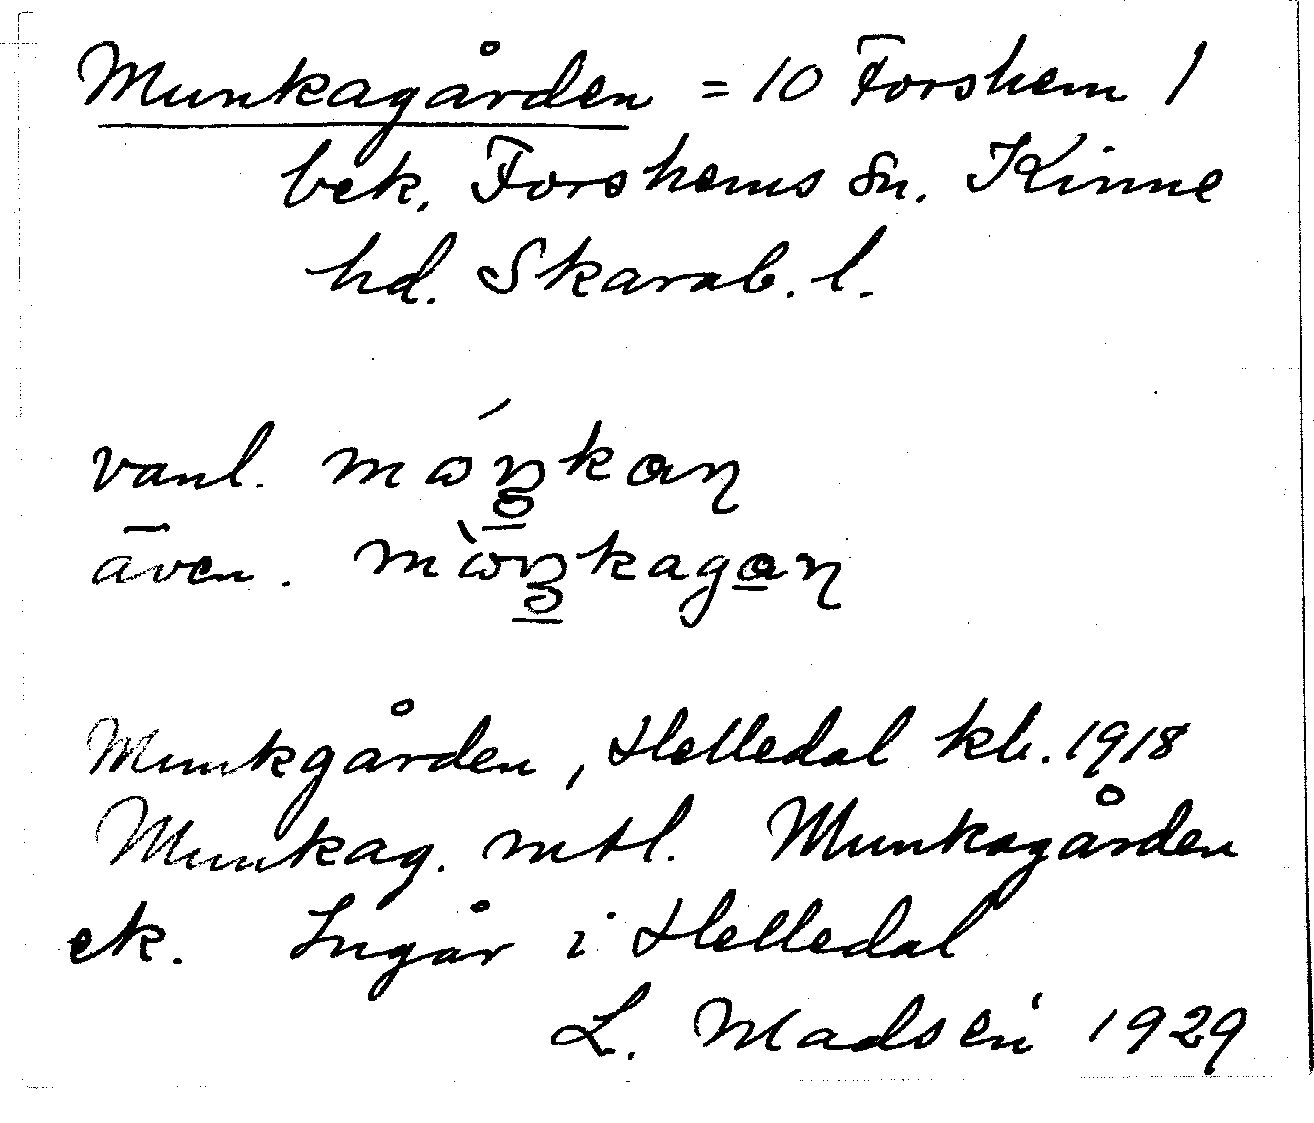 Munkagården = 10 Forshem 1
bek. Forshems sn. Kinne
hd. Skarab. l.
vanl.
även.
Munkgården, Helledal kb. 1918
Munkag. mtl. Munkagården
ek. Ingår i Helledal
L. Madsén 1929